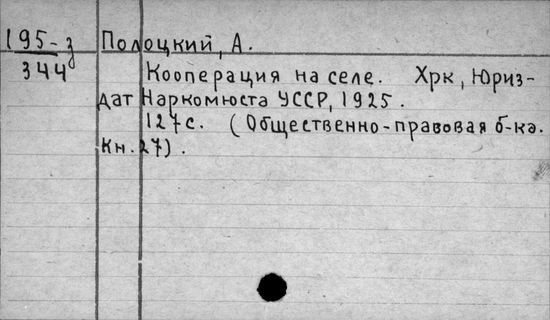 195-з Полоцкий, А.
344
Кооперация на селе. Хрк, Юриз-
дат Наркомюста УССР, 1925.
127с. (Общественно-правовая б-ка.
Кн. 27).